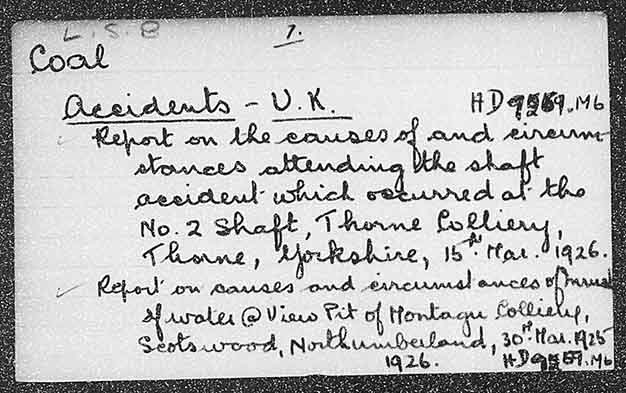 L.S.E
7.
Coal
Accidents - U.K. HD
Report on the causes of and circum-
stances attending the shaft
accident which occurred at the
No. 2 Shaft, Thorne Colliery,
Thorne, Yorkshire, 15th Mar. 1926.
Report on causes and circumstances of Inrush
of water @ View Pit of Montagu Colliery,
Scotswood, Northumberland, 30th Mar. 1925
1926. HD